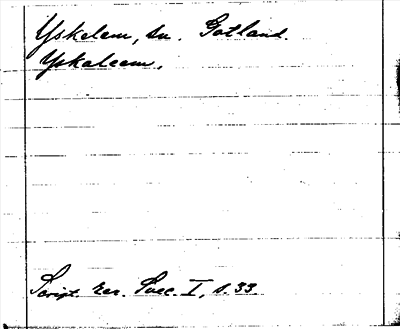 Yskelem, sn. Gotland.
Yskaleem.
Script. rer. Svec. I, s. 33.